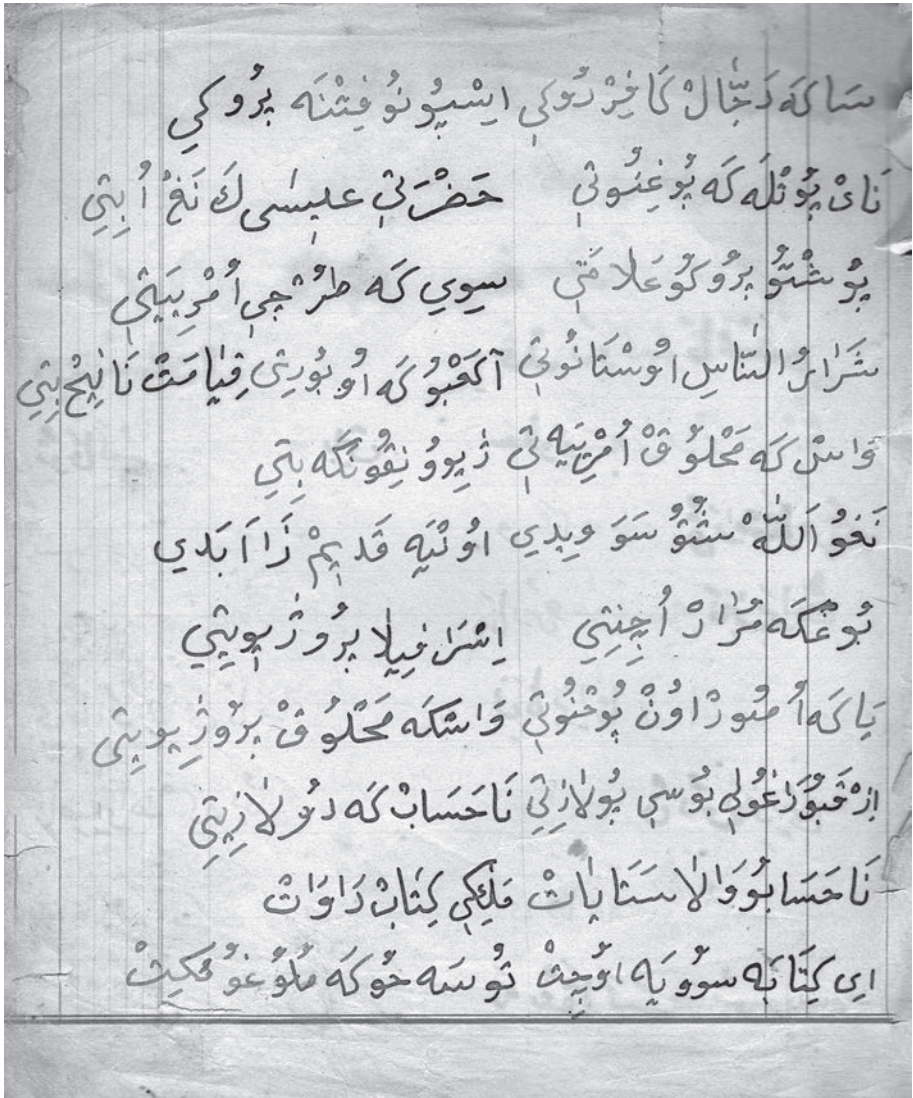 سَاكَه دَجّٰالْ كَافِرْ دُوكِي اِسْپُونُو فِتْنَه بِرُوكِي
نَائْ پُوتْلَه كَه بُوغِنُوتِي حَضْرَتِي عِيسٰى كَ نَغْ اُبِتِي
پُوشْتُو بِرُوكُو عَلامَتِي سِوِي كَه طرُڃِي اُمْرِيبَتِي
شَرَارُ النَّاسِ اوُسْتَانُوتِي آكَعْبُو كَه اوُبُورِتِي قِيٰامَتْ نَا نِيجْ بِتِي
وَاسْ كَه مَخْلُوقْ اُمْرِيَه تِي ژِيوُو نِقُونَكَه بِتِي
نَغوُ اَللّٰهْ سْتُوُ سَوَ وِيدِي اوُنْيَه قَدِيمْ ذَا اَبَدِي
بُوغْكَه مُرَادْ اُچِنِتِي اِسْرَافِيلا بِرُوژِيوِيتِي
يَا كَه اُصُورْ اوُنْ پُوخْنُوتِي وَاسْكَه مَخْلُوقْ بِرُوژِيوِيتِي
اِزْ قَبُورَاغُولِي بُوسِي پُولَازِتِي نَا حَسَابْ كَه دوُلَازِيتِي
نَا حَسَابُو وَالَاسْتَايَاتْ مَلَئِكِي كِتَابْ دَاوَاتْ
اِي كِتَابَه سوُويَه اوُچِتْ تُوسَه خُوكَه مُلوُغوُ مُكِتْ